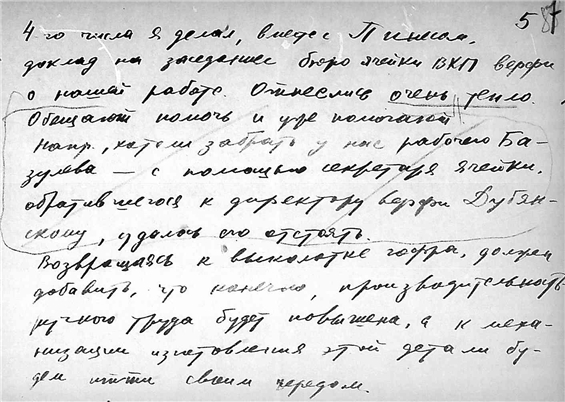 5 87
4-го числа я делал, вместе с Пинесом,
доклад на заседание бюро ячейки ВКП верфи
о нашей работе. Отнеслись очень тепло.
Обещают помочь и уже помогают
напр., хотели забрать у нас рабочего Ба-
зулева — с помощью секретаря ячейки,
обратившегося к директору верфи Дубян-
скому, удалось его отстоять.
Возвращаясь к выколотке гофра, должен
добавить, что конечно, производительность
ручного труда будет повышена, а к меха-
низации изготовления этой детали бу-
дем итти своим чередом.